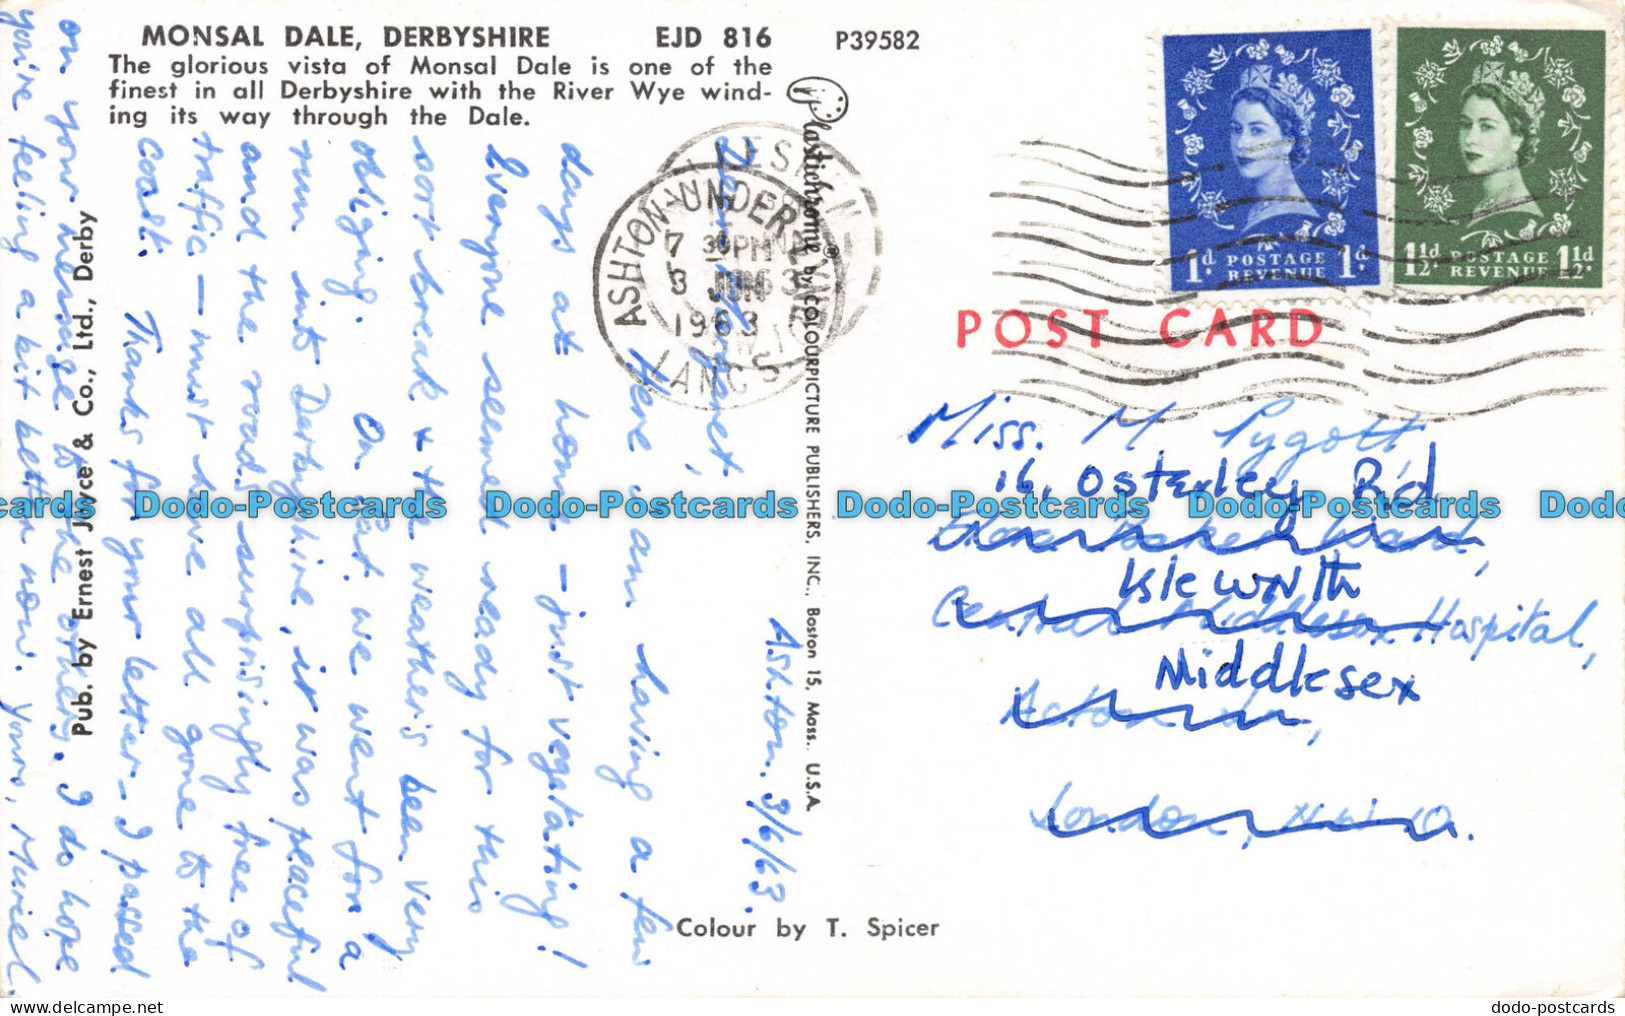 MONSAL DALE, DERBYSHIRE EJD 816 P39582
The glorious vista of Monsal Dale is one of the
finest in all Derbyshire with the River Wye wind-
ing its way through the Dale.
Plastichrome ® by COLOURPICTURE PUBLISHERS, INC., Boston 15, Mass. U.S.A.
Pub. by Ernest Joyce & Co., Ltd., Derby
Colour by T. Spicer
POST CARD
1d POSTAGE REVENUE 1d
1½d POSTAGE REVENUE 1½d
ASHTON-UNDER-LYNE
7 30PM
3 JUN
1963
LANCS
Ashton. 3/6/63.
Margaret,
Here I am having a few
days at home – just vegetating!
Everyone seemed ready for this
sort break & the weather's been very
obliging. On Sat. we went for a
run into Derbyshire, it was peaceful
and the roads surprisingly free of
traffic – must have all gone to the
coast. Thanks for your letter – I passed
on your message to the others. I do hope
you're feeling a bit better now. Yours, Muriel.
Miss. M Pygott
16, Osterley Rd
Ward,
Isleworth
Central Middlesex Hospital,
Middlesex
Acton Ln,
London, N.W.10.
Dodo-Postcards Dodo-Postcards Dodo-Postcards Dodo-Postcards Dodo-Postcards
dodo-postcards.com